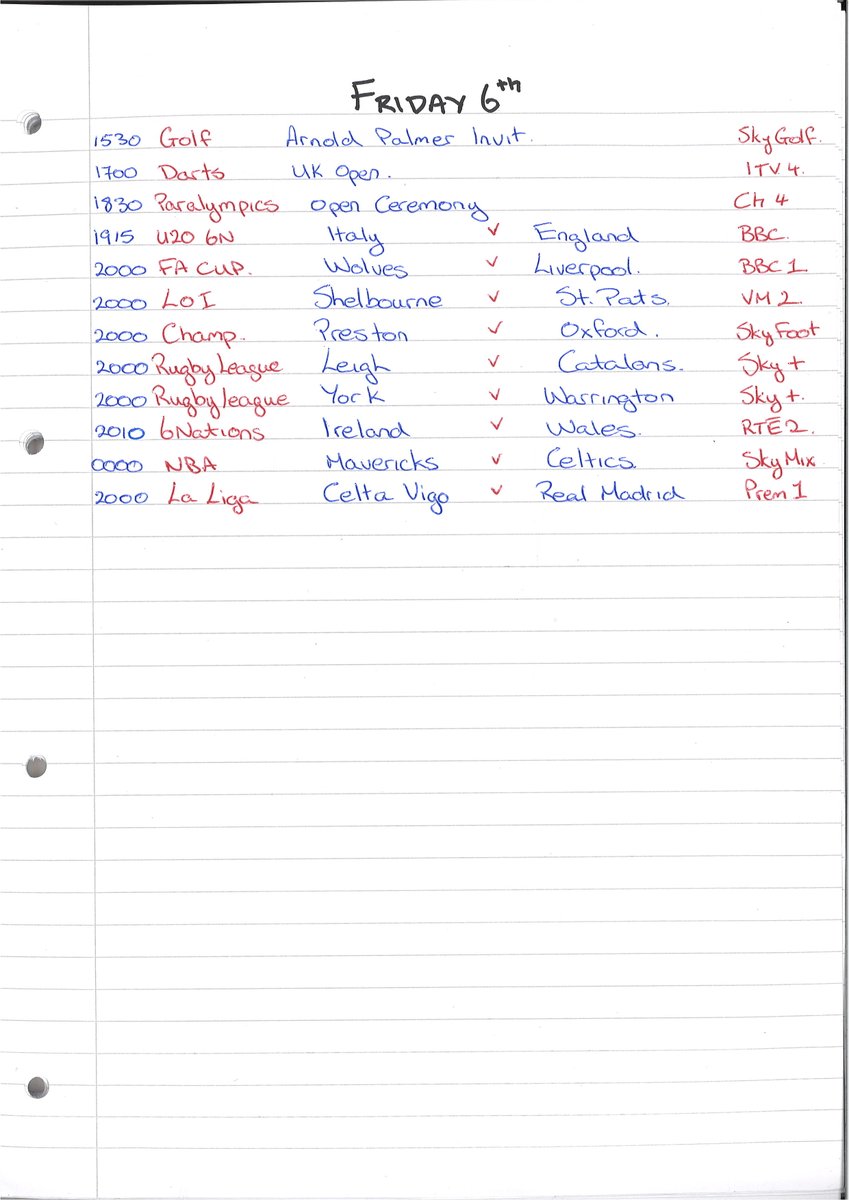 FRIDAY 6th
1530 Golf Arnold Palmer Invit. Sky Golf.
1700 Darts UK Open. ITV 4.
1830 Paralympics Open Ceremony Ch 4
1915 U20 6N Italy v England BBC.
2000 FA CUP. Wolves v Liverpool. BBC 1
2000 LOI Shelbourne v St. Pats. VM 2.
2000 Champ. Preston v Oxford. Sky Foot
2000 Rugby League Leigh v Catalans. Sky +
2000 Rugby league York v Warrington Sky +.
2010 6Nations Ireland v Wales. RTÉ 2.
0000 NBA Mavericks v Celtics. Sky Mix
2000 La Liga Celta Vigo v Real Madrid Prem 1